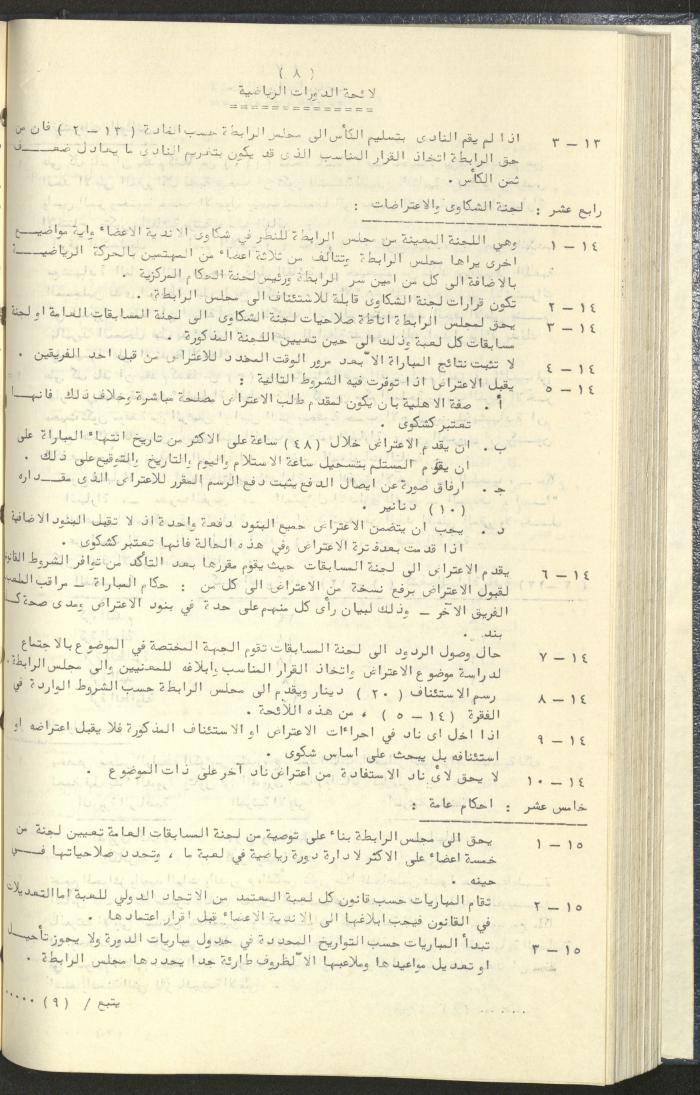 ( ٨ )
لائحة الدورات الرياضية
١٣ – ٣ اذا لم يقم النادى بتسليم الكأس الى مجلس الرابطة حسب المادة ( ١٣ – ٢ ) فان من
حق الرابطة اتخاذ القرار المناسب الذى قد يكون بتغريم النادي ما يعادل ضعف
ثمن الكأس .
رابع عشر : لجنة الشكاوى والاعتراضات :
١٤ – ١ وهي اللجنة المعينة من مجلس الرابطة للنظر في شكاوى الاندية الاعضاء واية مواضيع
اخرى يراها مجلس الرابطة وتتألف من ثلاثة اعضاء من المهتمين بالحركة الرياضية
بالاضافة الى كل من امين سر الرابطة ورئيس لجنة الحكام المركزية .
١٤ – ٢ تكون قرارات لجنة الشكاوى قابلة للاستئناف الى مجلس الرابطة .
١٤ – ٣ يحق لمجلس الرابطة اناطة صلاحيات لجنة الشكاوى الى لجنة المسابقات العامة او لجنة
مسابقات كل لعبة وذلك الى حين تعيين اللجنة المذكورة .
١٤ – ٤ لا تثبت نتائج المباراة الا بعد مرور الوقت المحدد للاعتراض من قبل احد الفريقين .
١٤ – ٥ يقبل الاعتراض اذا توفرت فيه الشروط التالية :
أ . صفة الاهلية بان يكون لمقدم طلب الاعتراض مصلحة مباشرة وخلاف ذلك فانها
تعتبر كشكوى .
ب . ان يقدم الاعتراض خلال (٤٨) ساعة على الاكثر من تاريخ انتهاء المباراة على
ان يقوم المستلم بتسجيل ساعة الاستلام واليوم والتاريخ والتوقيع على ذلك .
جـ . ارفاق صورة عن ايصال الدفع يثبت دفع الرسم المقرر للاعتراض الذى مقداره
(١٠) دنانير .
د . يجب ان يتضمن الاعتراض جميع البنود دفعة واحدة اذ لا تقبل البنود الاضافية
اذا قدمت بعد فترة الاعتراض وفي هذه الحالة فانها تعتبر كشكوى .
١٤ – ٦ يقدم الاعتراض الى لجنة المسابقات حيث يقوم مقررها بعد التأكد من توافر الشروط
لقبول الاعتراض برفع نسخة من الاعتراض الى كل من : حكام المباراة – مراقب الملعب
الفريق الآخر – وذلك لبيان رأى كل منهم على حدة في بنود الاعتراض ومدى صحة كل
بند .
١٤ – ٧ حال وصول الردود الى لجنة المسابقات تقوم الجهة المختصة في الموضوع بالاجتماع
لدراسة موضوع الاعتراض واتخاذ القرار المناسب وابلاغه للمعنيين والى مجلس الرابطة .
١٤ – ٨ رسم الاستئناف ( ٢٠ ) دينار ويقدم الى مجلس الرابطة حسب الشروط الواردة في
الفقرة ( ١٤ – ٥ ) ، من هذه اللائحة .
١٤ – ٩ اذا اخل اى ناد في اجراءات الاعتراض او الاستئناف المذكورة فلا يقبل اعتراضه او
استئنافه بل يبحث على اساس شكوى .
١٤ – ١٠ لا يحق لأى ناد الاستفادة من اعتراض ناد آخر على ذات الموضوع .
خامس عشر : احكام عامة :
١٥ – ١ يحق الى مجلس الرابطة بناء على توصية من لجنة المسابقات العامة تعيين لجنة من
خمسة اعضاء على الاكثر لادارة دورة رياضية في لعبة ما ، وتحدد صلاحياتها في
حينه .
١٥ – ٢ تقام المباريات حسب قانون كل لعبة المعتمد من الاتحاد الدولي للعبة اما التعديلات
في القانون فيجب ابلاغها الى الاندية الاعضاء قبل اقرار اعتمادها .
١٥ – ٣ تبدأ المباريات حسب التواريخ المحددة في جدول مباريات الدورة ولا يجوز تأجيل
او تعديل مواعيدها وملاعبها الا لظروف طارئة جدا يحددها مجلس الرابطة .
يتبع / (٩) .....